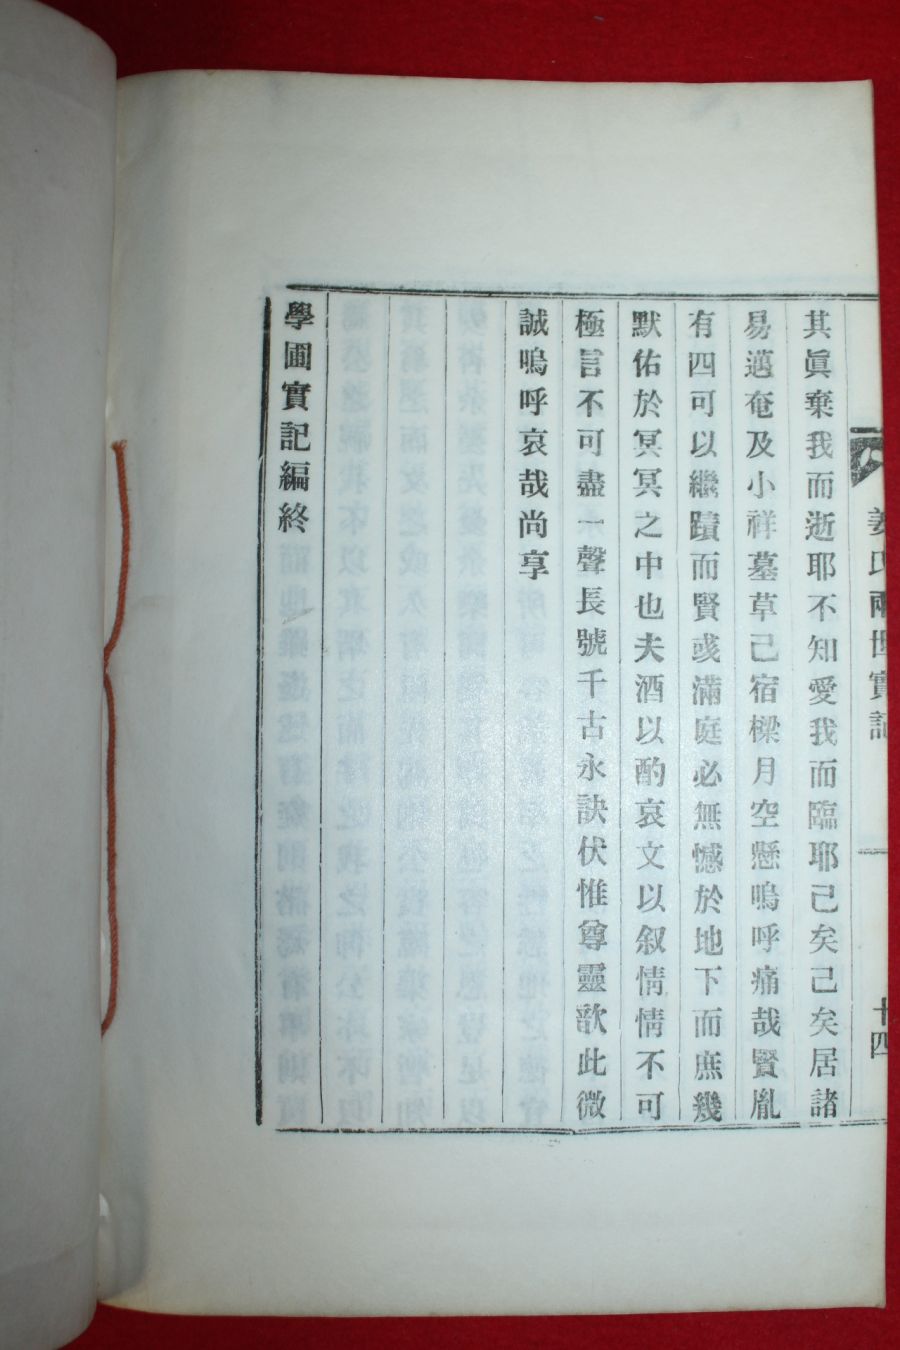 姜氏兩世實記
十四
其眞棄我而逝耶不知愛我而臨耶己矣己矣居諸
易邁奄及小祥墓草己宿樑月空懸嗚呼痛哉賢胤
有四可以繼蹟而賢彧滿庭必無憾於地下而庶幾
默佑於冥冥之中也夫酒以酌哀文以叙情情不可
極言不可盡一聲長號千古永訣伏惟尊靈歆此微
誠嗚呼哀哉尚享
學圃實記編終